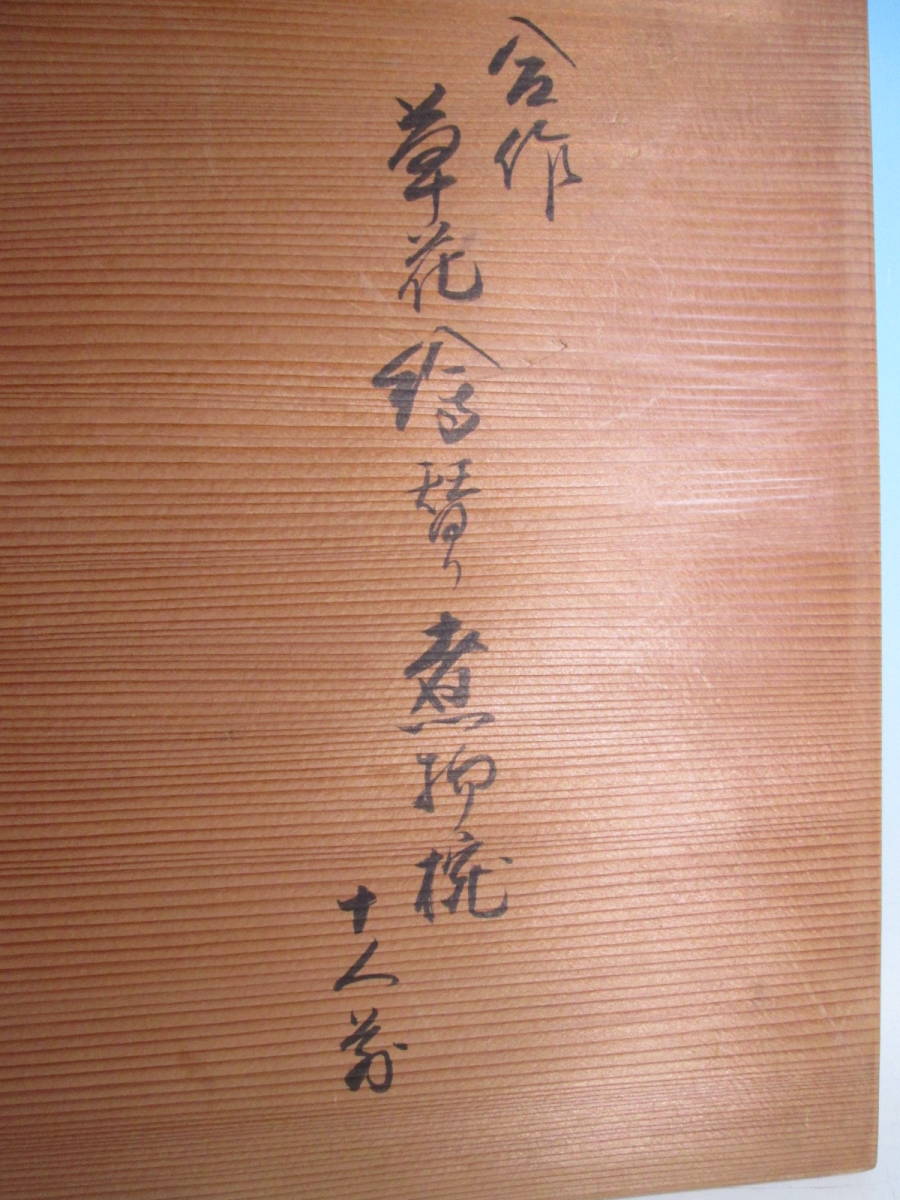 合作
草花絵替り煮物椀
十人前